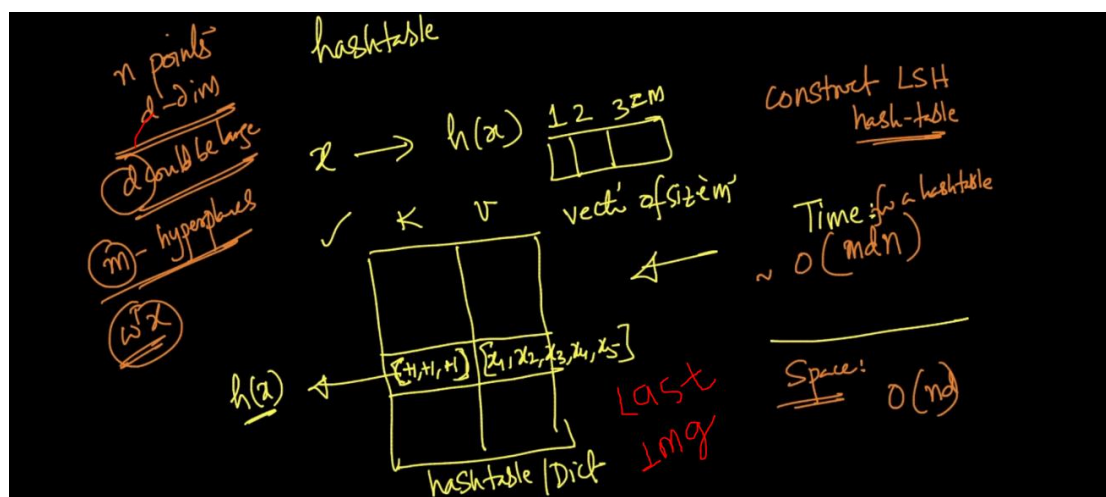 n points
d-dim
d could be large
m - hyperplanes
wᵀx
hashtable
x → h(x)
1 2 3=m
vect' of size 'm'
✓ K V
[+1,+1,+1] [x₁, x₂, x₃, x₄, x₅]
h(x)
hashtable/Dict
Last
Img
construct LSH
hash-table
Time: for a hashtable
~ O(mdn)
Space:
O(nd)